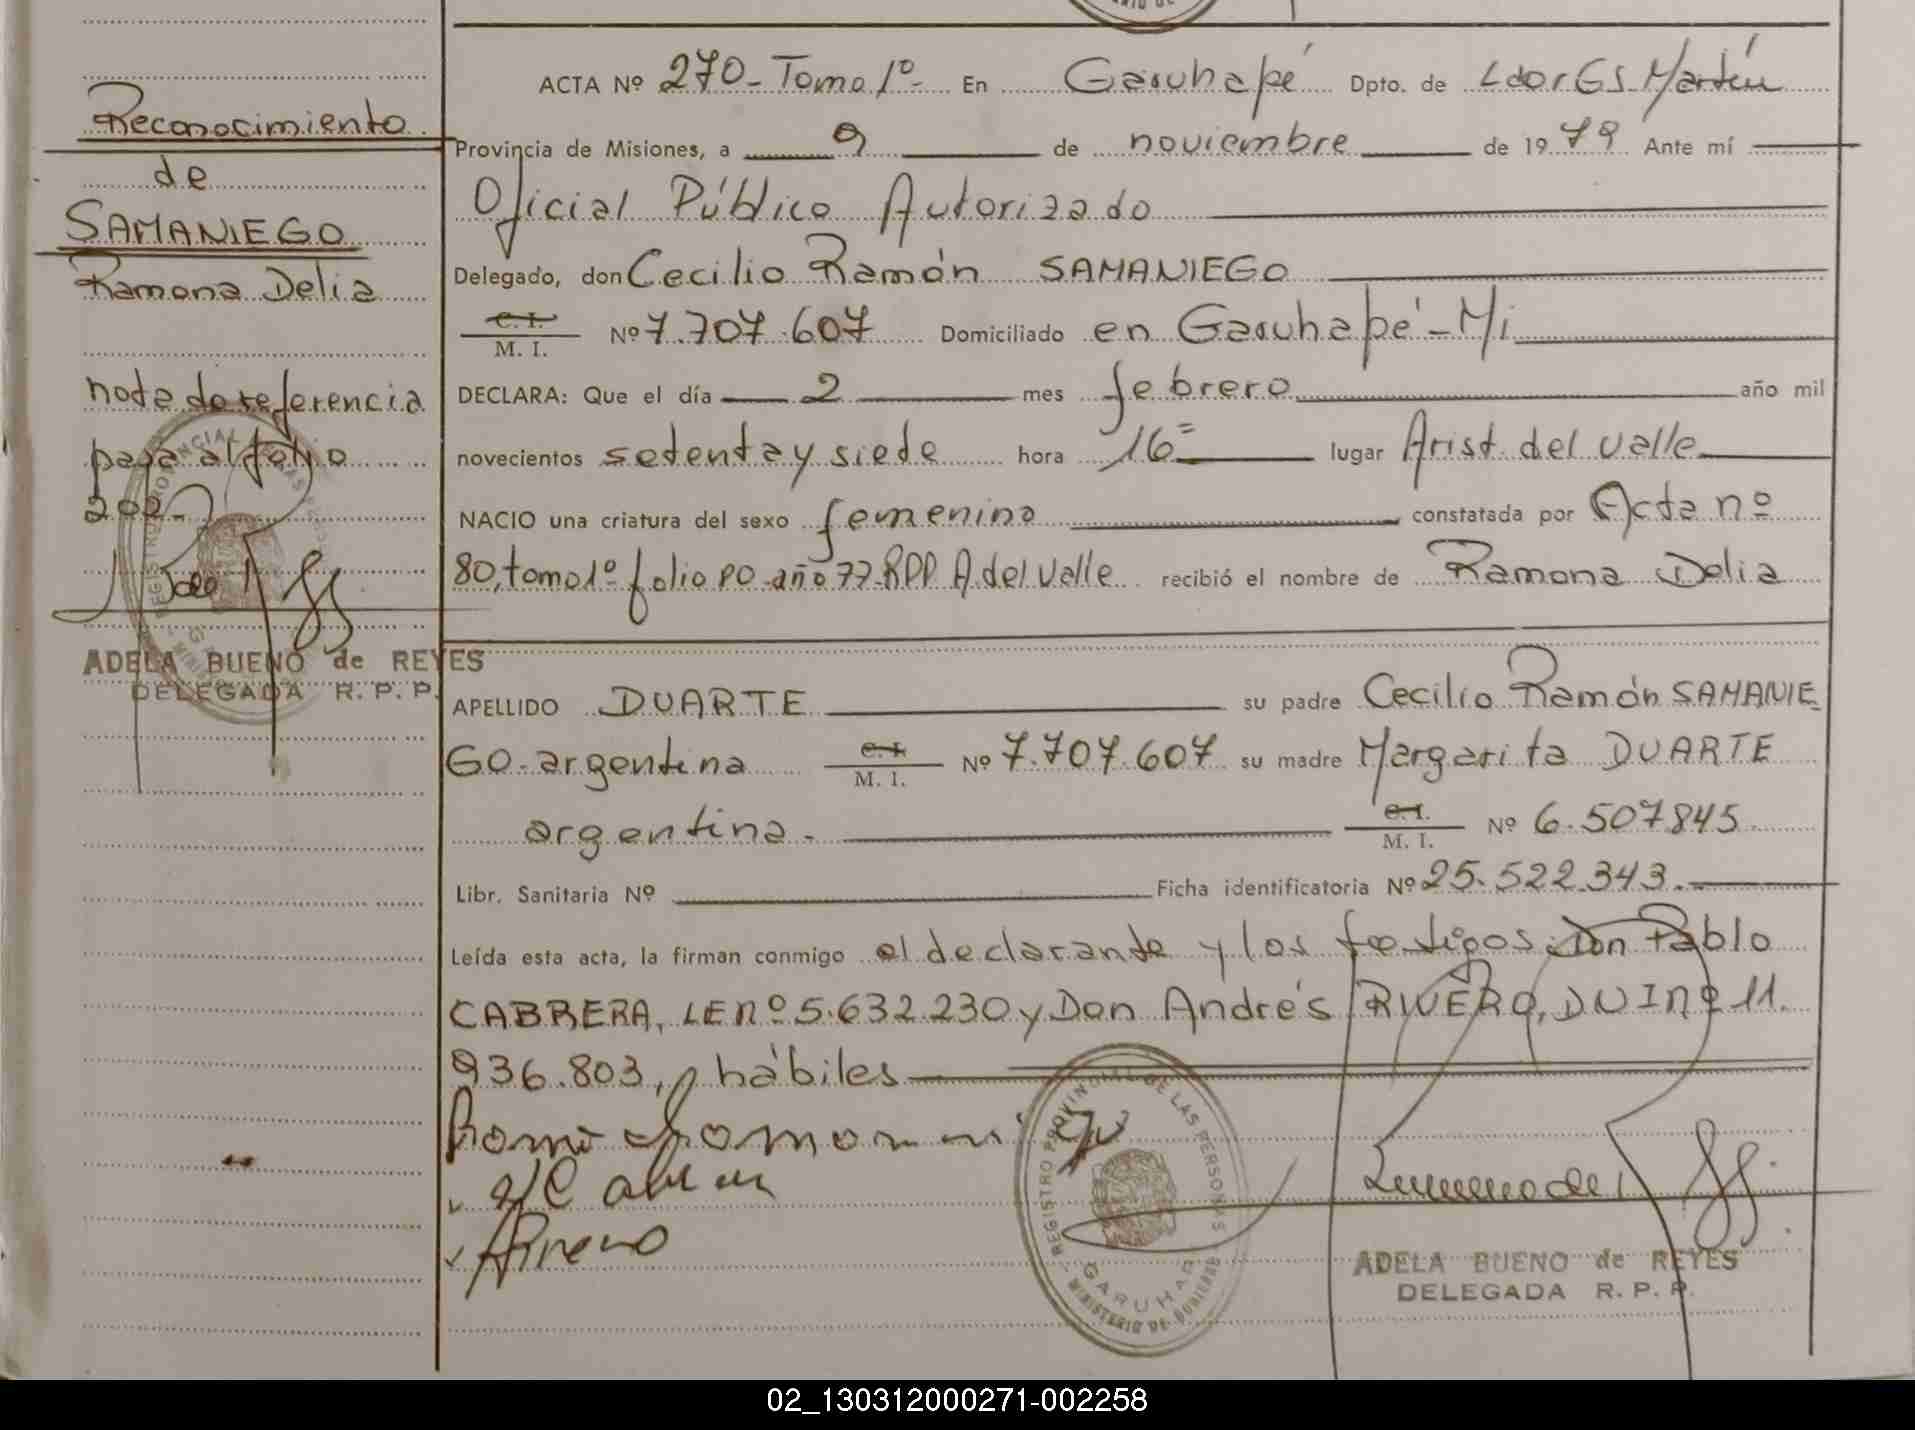 Reconocimiento
de
SAMANIEGO
Ramona Delia
nota de referencia
pasa al folio
202-
ADELA BUENO de REYES
DELEGADA R. P. P.
ACTA Nº 270- Tomo 1º- En Garuhapé Dpto. de Ldor GS Martín
Provincia de Misiones, a 9 de noviembre de 1979 Ante mí
Oficial Público Autorizado
Delegado, don Cecilio Ramón SAMANIEGO
C. I. M. I. Nº 7.707.607 Domiciliado en Garuhapé-Mi
DECLARA: Que el día 2 mes febrero año mil
novecientos setenta y siete hora 16= lugar Arist. del Valle
NACIO una criatura del sexo femenino constatada por Acta nº
80, tomo 1º folio 80 año 77-RPP A. del Valle recibió el nombre de Ramona Delia
APELLIDO DUARTE su padre Cecilio Ramón SAMANIE
GO-argentina C. I. M. I. Nº 7.707.607 su madre Margarita DUARTE
argentina.- C. I. M. I. Nº 6.507845
Libr. Sanitaria Nº Ficha identificatoria Nº 25.522.343.
Leída esta acta, la firman conmigo el declarante y los testigos Don Pablo
CABRERA, LE nº 5.632.230 y Don Andrés RIVERO, DNI nº 11.
936.803, hábiles
REGISTRO PROVINCIAL DE LAS PERSONAS
GARUHAPE
MINISTERIO DE GOBIERNO
ADELA BUENO de REYES
DELEGADA R. P. P.
02_130312000271-002258